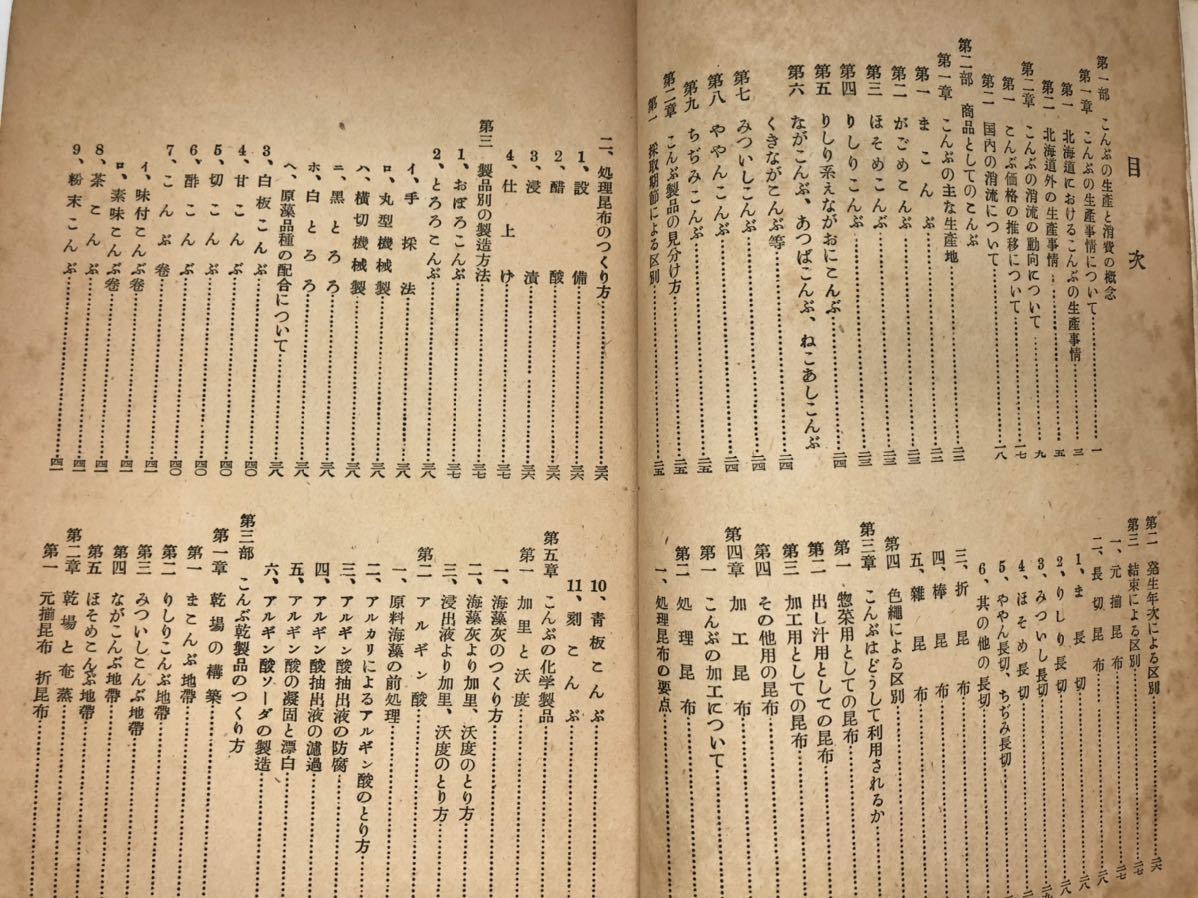 目次
第一部 こんぶの生産と消費の概念
第一章 こんぶの生産事情について……一
第一 北海道におけるこんぶの生産事情……三
第二 北海道外の生産事情……五
第二章 こんぶの消流の動向について……九
第一 こんぶ価格の推移について……一七
第二 国内の消流について……一八
第二部 商品としてのこんぶ
第一章 こんぶの主な生産地……二二
第一 まこんぶ……二二
第二 がごめこんぶ……二三
第三 ほそめこんぶ……二三
第四 りしりこんぶ……二三
第五 りしり系えながおにこんぶ……二四
第六 ながこんぶ、あつばこんぶ、ねこあしこんぶ
くきながこんぶ等……二四
第七 みついしこんぶ……二四
第八 ややんこんぶ……二四
第九 ちぢみこんぶ……二五
第二章 こんぶ製品の見分け方……二五
第一 採取期節による区別……二五
第二 発生年次による区別……二六
第三 結束による区別……二七
一、元揃昆布……二七
二、長切昆布……二八
1、ま長切……二八
2、りしり長切……二八
3、みついし長切
4、ほそめ長切
5、ややん長切、ちぢみ長切
6、其の他の長切
三、折昆布
四、棒昆布
五、雜昆布
第四 色縄による区別
第三章 こんぶはどうして利用されるか
第一 惣菜用としての昆布
第二 出し汁用としての昆布
第三 加工用としての昆布
第四 その他用の昆布
第四章 加工昆布
第一 こんぶの加工について
第二 処理昆布
一、処理昆布の要点
二、処理昆布のつくり方……三六
1、設備……三六
2、醋酸……三六
3、浸漬……三六
4、仕上け……三七
第三 製品別の製造方法……三七
1、おぼろこんぶ……三七
2、とろろこんぶ……三八
イ、手採法……三八
ロ、丸型機械製……三八
ハ、橫切機械製……三八
ニ、黑とろろ……三八
ホ、白とろろ……三八
ヘ、原藻品種の配合について……三八
3、白板こんぶ……四〇
4、甘こんぶ……四〇
5、切こんぶ……四〇
6、酢こんぶ……四〇
7、こんぶ卷……四〇
イ、味付こんぶ卷……四一
ロ、素味こんぶ卷……四一
8、茶こんぶ……四一
9、粉末こんぶ……四一
10、靑板こんぶ
11、刻こんぶ
第五章 こんぶの化学製品
第一 加里と沃度
一、海藻灰のつくり方
二、海藻灰より加里、沃度のとり方
三、浸出液より加里、沃度のとり方
第二 アルギン酸
一、原料海藻の前処理
二、アルカリによるアルギン酸のとり方
三、アルギン酸抽出液の防腐
四、アルギン酸抽出液の濾過
五、アルギン酸の凝固と漂白
六、アルギン酸ソーダの製造
第三部 こんぶ乾製品のつくり方
第一章 乾場の構築
第一 まこんぶ地帶
第二 りしりこんぶ地帶
第三 みついしこんぶ地帶
第四 ながこんぶ地帶
第五 ほそめこんぶ地帶
第二章 乾場と奄蒸
第一 元揃昆布 折昆布